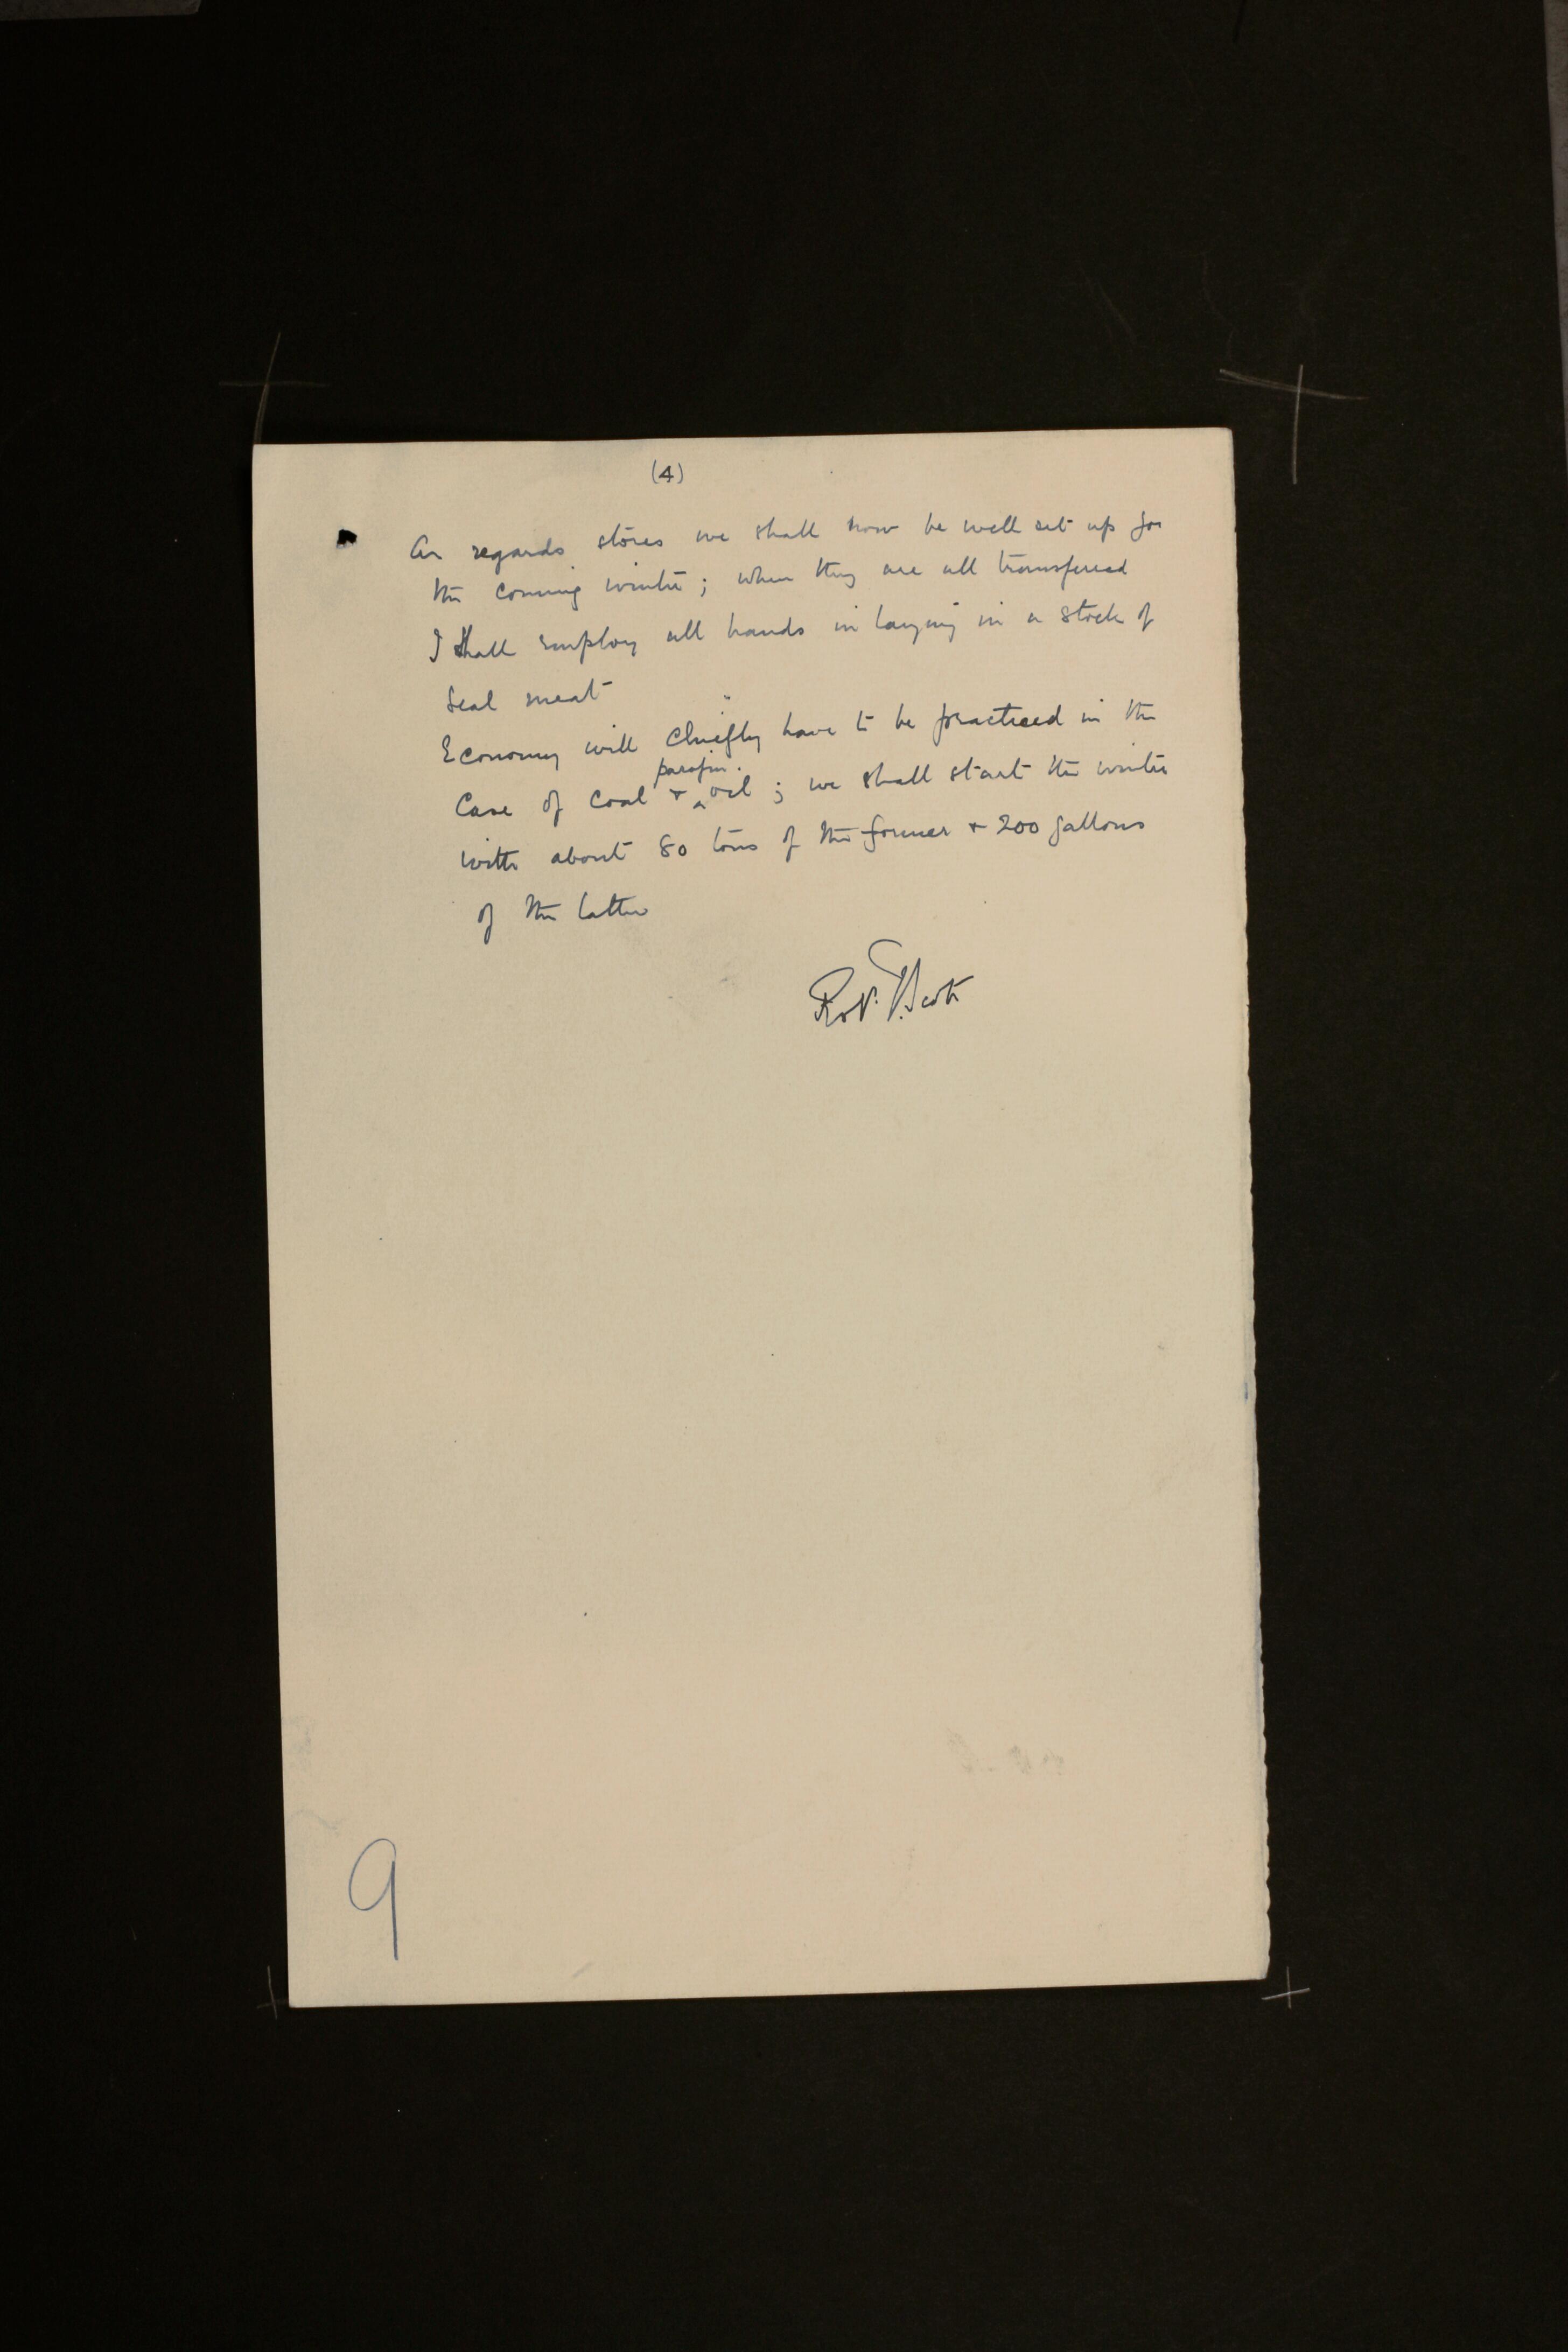 (4)
As regards stores we shall now be well set up for
the coming winter ; when they are all transferred
I shall employ all hands in laying in a stock of
seal meat
Economy will chiefly have to be practiced in the
parafin.
case of coal & ^ oil ; we shall start the winter
with about 80 tons of the former & 200 gallons
of the latter
Robt. F. Scott
9